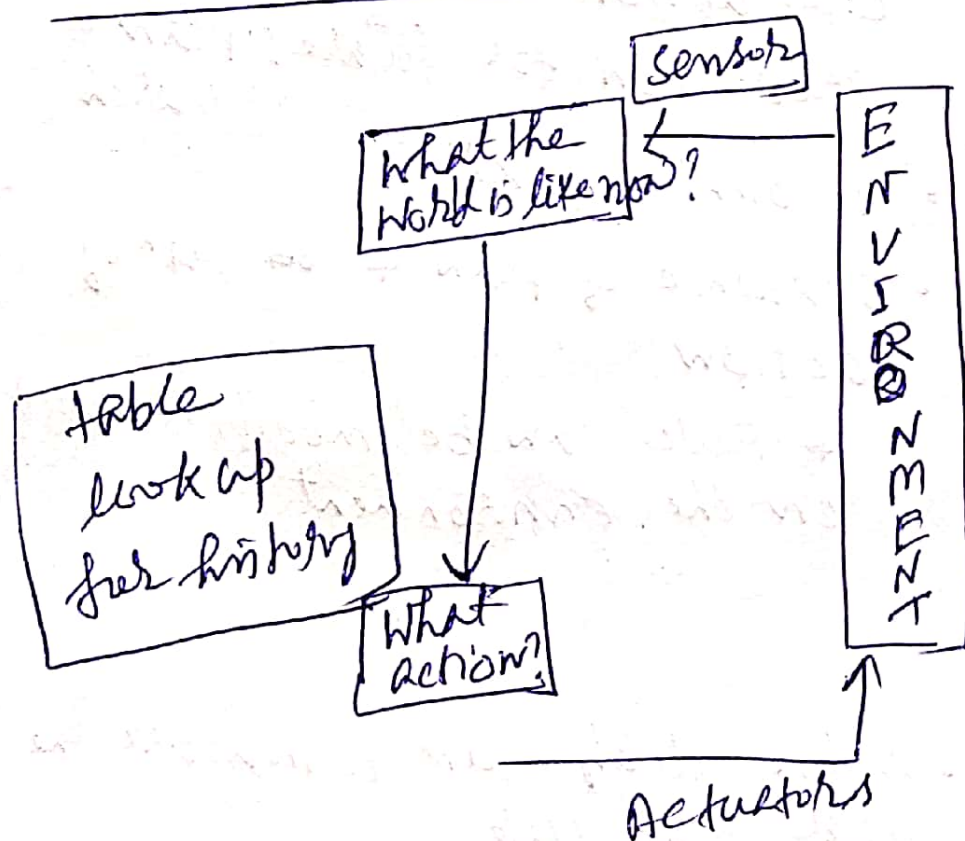 sensor
What the
World is like now?
ENVIRONMENT
table
look up
for history
What
action?
Actuators